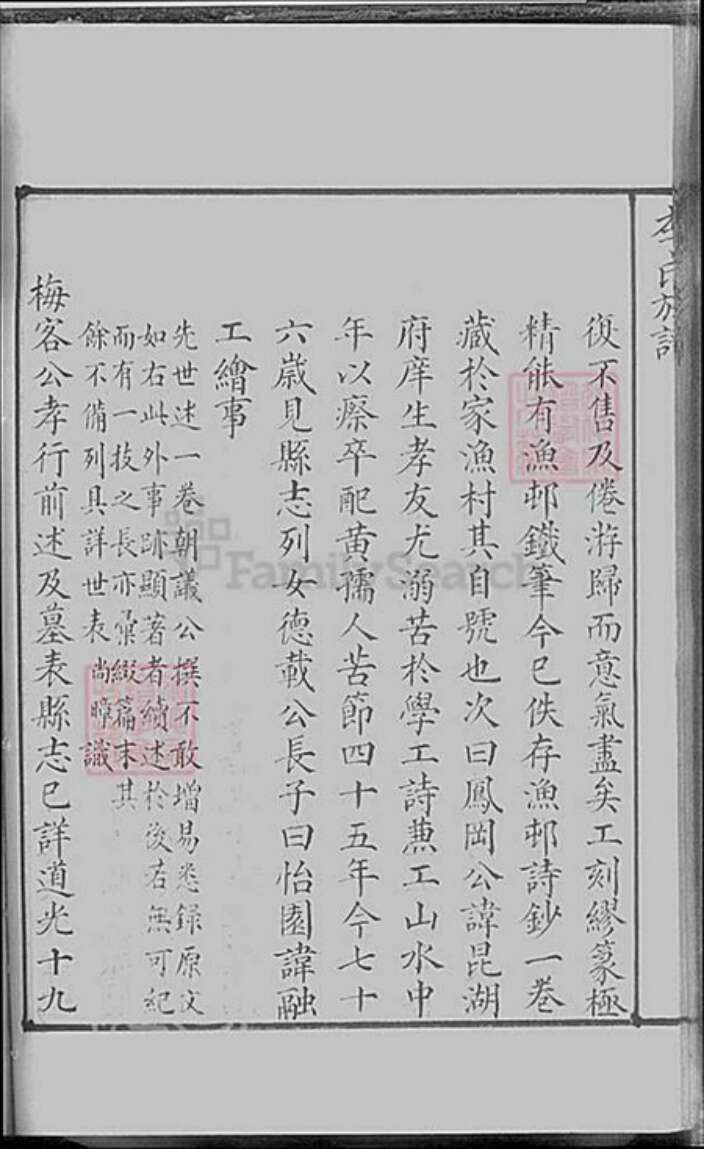 李氏族譜
復不售及倦游歸而意氣盡矣工刻繆篆極
精能有漁邨鐵筆今已佚存漁邨詩鈔一卷
藏於家漁村其自號也次曰鳳岡公諱昆湖
府庠生孝友尤溺苦於學工詩兼工山水中
年以瘵卒配黄孺人苦節四十五年今七十
六歲見縣志列女德載公長子曰怡園諱融
工繪事
先世述一卷朝議公撰不敢增易悉録原文
如右此外事跡顯著者續述於後若無可紀
而有一技之長亦彙綴篇末其
餘不備列具詳世表尚暲識
梅客公孝行前述及墓表縣志已詳道光十九
FamilySearch